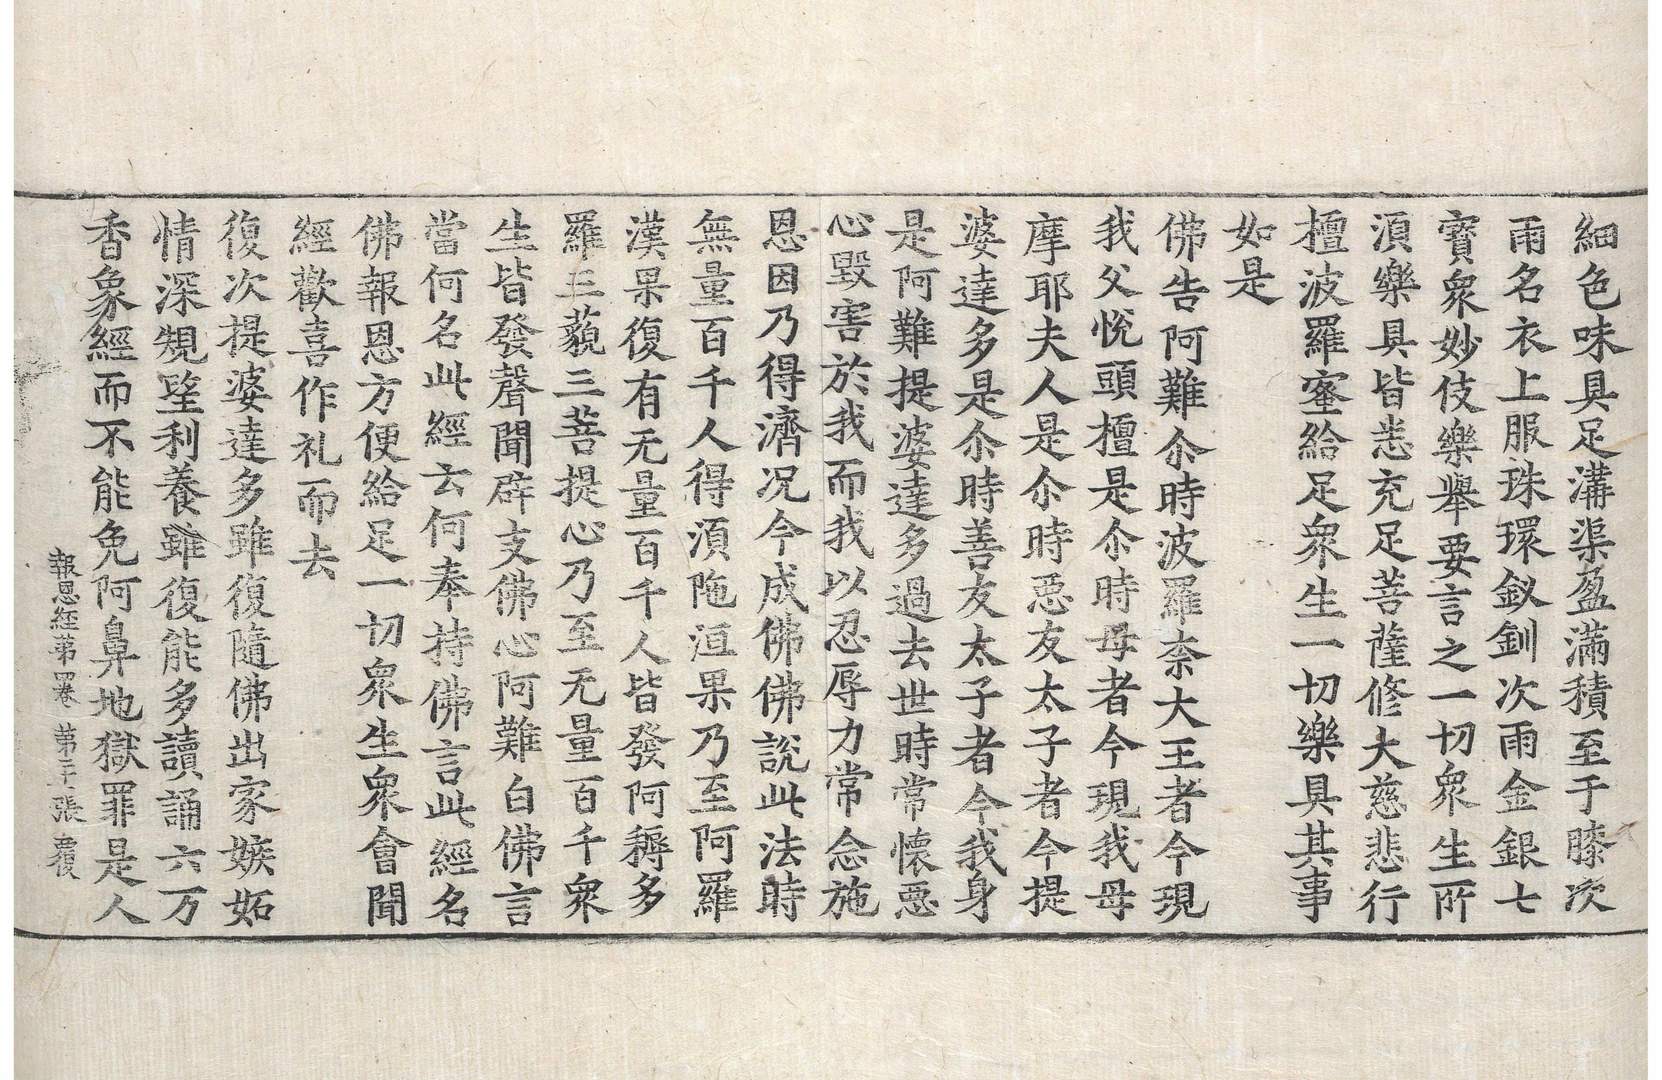 細色味具足溝渠盈滿積至于膝次
雨名衣上服珠環釵釧次雨金銀七
寶衆妙伎樂舉要言之一切衆生所
湏樂具皆悉充足菩薩修大慈悲行
檀波羅蜜給足衆生一切樂具其事
如是
佛告阿難尒時波羅柰大王者今現
我父悅頭檀是尒時母者今現我母
摩耶夫人是尒時惡友太子者今提
婆達多是尒時善友太子者今我身
是阿難提婆達多過去世時常懷惡
心毀害於我而我以忍辱力常念施
恩因乃得濟况今成佛佛說此法時
無量百千人得湏陁洹果乃至阿羅
漢果復有无量百千人皆發阿耨多
羅三藐三菩提心乃至无量百千衆
生皆發聲聞辟支佛心阿難白佛言
當何名此經云何奉持佛言此經名
佛報恩方便給足一切衆生衆會聞
經歡喜作礼而去
復次提婆達多雖復隨佛出家嫉妬
情深䂓望利養雖復能多讀誦六万
香象經而不能免阿鼻地獄罪是人
報恩經苐四卷 苐二十張 覆